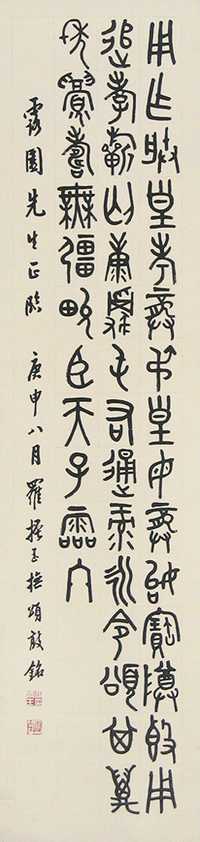 用乍朕皇考龏弔皇母龏始寶尊𣪘用
追孝蘄匄康𩁹屯右通彔永令頌其萬
年眉壽無疆畯臣天子霝冬
露園先生正臨 庚申八月羅振玉撫頌敦銘